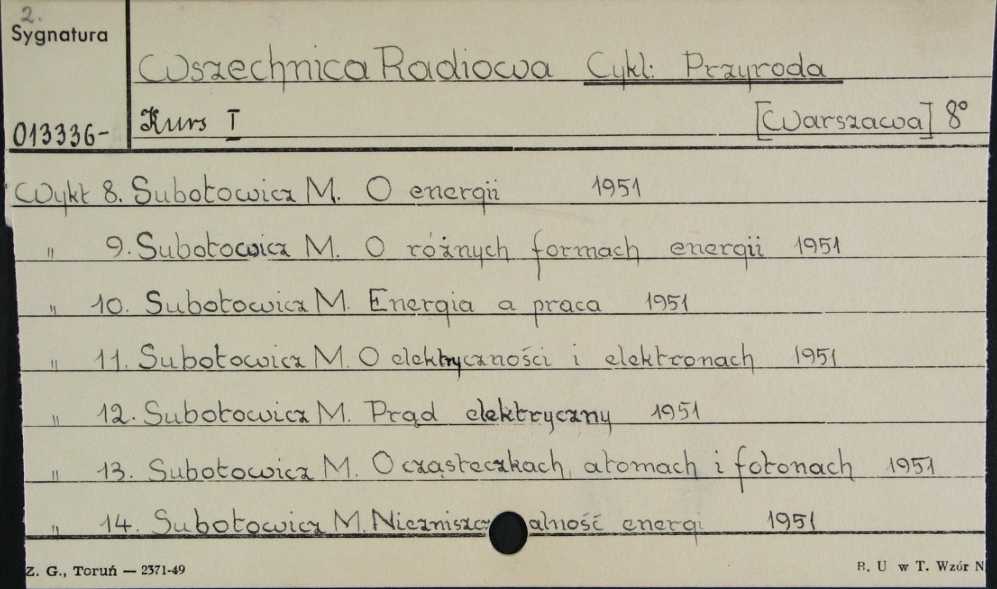 2.
Sygnatura
Wszechnica Radiowa Cykl: Przyroda
013336- Kurs I [Warszawa] 8°
Wykł 8. Subotowicz M. O energii 1951
" 9. Subotowicz M. O różnych formach energii 1951
" 10. Subotowicz M. Energia a praca 1951
" 11. Subotowicz M. O elektryczności i elektronach 1951
" 12. Subotowicz M. Prąd elektryczny 1951
" 13. Subotowicz M. O cząsteczkach, atomach i fotonach 1951
" 14. Subotowicz M. Niezniszczalność energi 1951
Z. G., Toruń — 2371-49 B. U w T. Wzór N